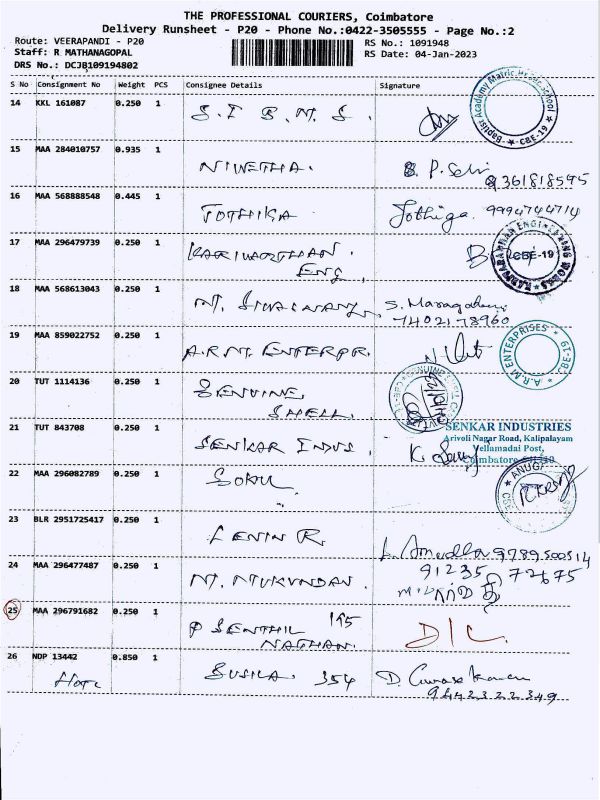 THE PROFESSIONAL COURIERS, Coimbatore
Delivery Runsheet - P20 - Phone No.:0422-3505555 - Page No.:2
Route: VEERAPANDI - P20
RS No.: 1091948
Staff: R MATHANAGOPAL
RS Date: 04-Jan-2023
DRS No.: DCJB109194802
S No Consignment No Weight PCS Consignee Details Signature
14 KKL 161087 0.250 1 S. I B. M. S.
Baptist Academy Matric CBE-19
15 MAA 284010757 0.935 1 NIWETHA. P. Selvi
9361818595
16 MAA 568888548 0.445 1 JOTHIKA Jothiga. 9994744714
17 MAA 296479739 0.250 1 KARIWARTHAN.
ENG.
CBE-19
18 MAA 568613043 0.250 1 MT. S.
7402178960
19 MAA 859022752 0.250 1 A.R.M. ENTERPR.
A.R.M ENTERPRISES CBE-19
20 TUT 1114136 0.250 1 GENUINE
SHELL.
21 TUT 843708 0.250 1 SENKAR INDUS. K.
SENKAR INDUSTRIES
Arivoli Nagar Road, Kalipalayam
Vellamadai Post,
22 MAA 296082789 0.250 1
ANUGR
23 BLR 2951725417 0.250 1 LENIN R.
9789500514
24 MAA 296477487 0.250 1 MT. MUKUNDAN.
91235 72675
25 MAA 296791682 0.250 1 P SENTHIL 195 D/C.
NATHAN.
26 NDP 13442 0.850 1 SUSILA. 354 D.
9442322349